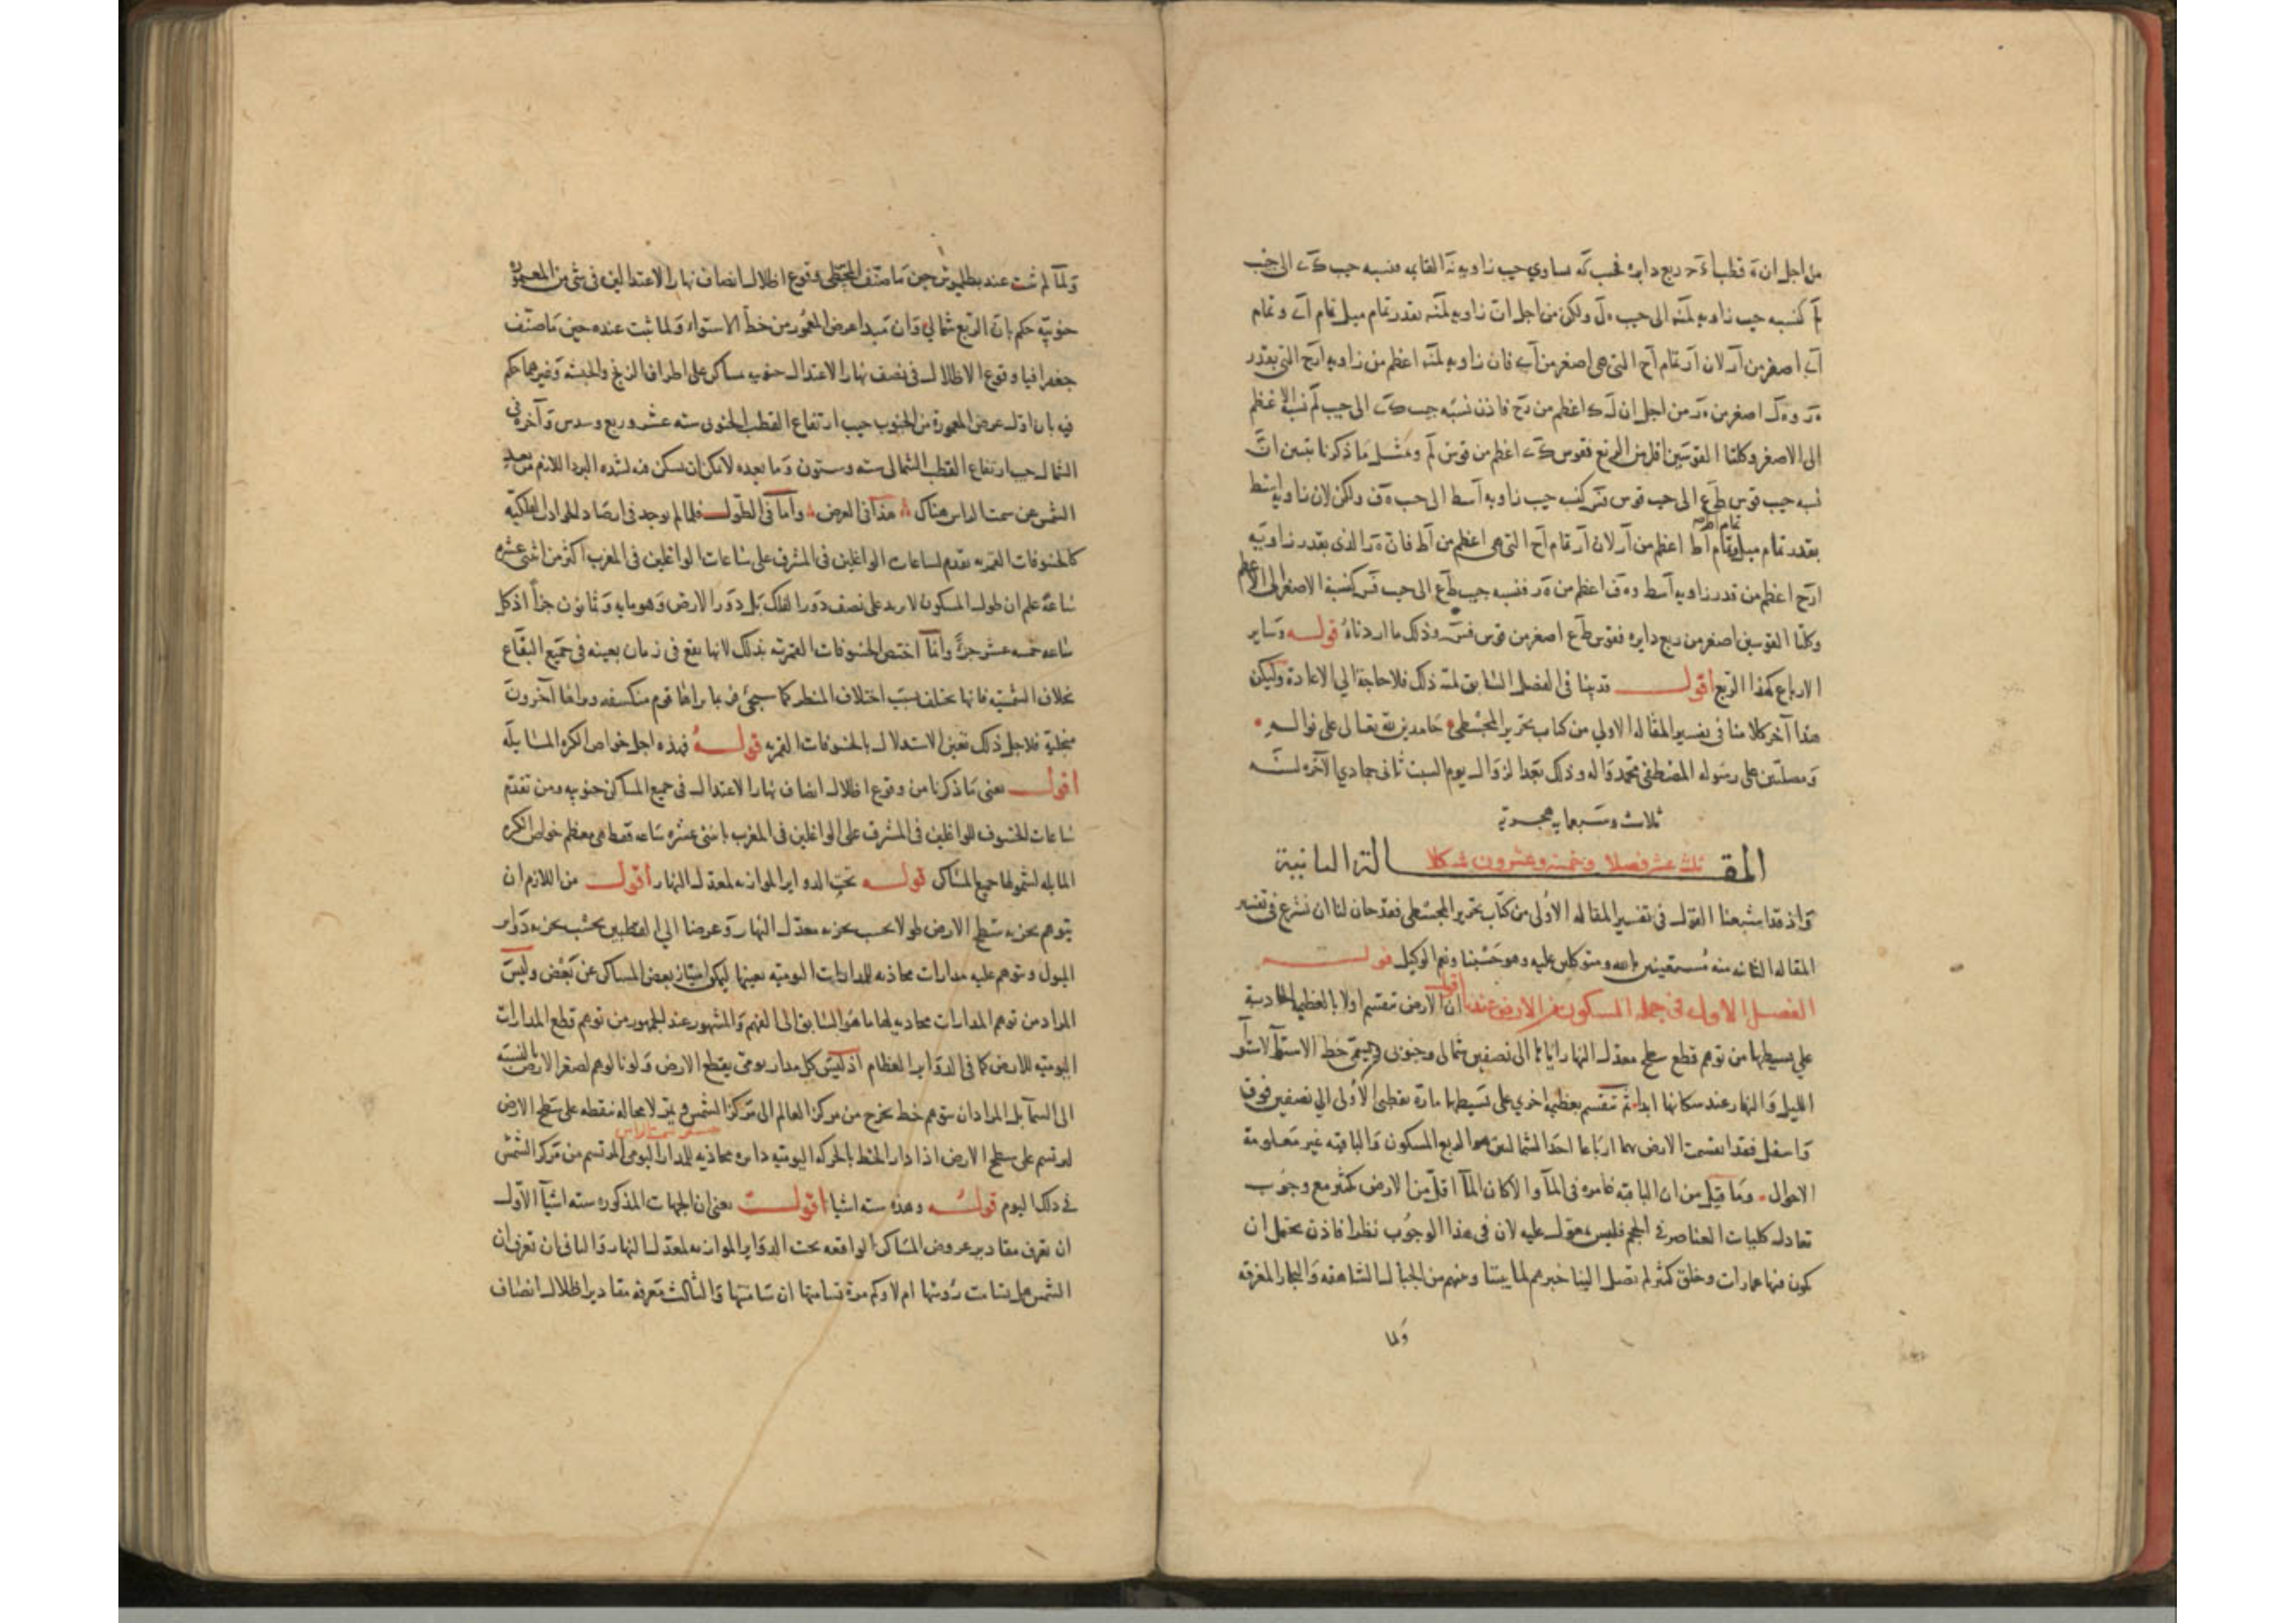 من اجل ان ة قطبا ءَحَ ربع دايره فجيب كَه مساوي جيب زاويه نَه القايمه فنسبه جيب كَے الى جيب
لَم كنسبه جيب زاويه لمَنه الى جيب ه لَ ولكن من اجل ان زاويه لمَنه بقدر تمام ميل تمام اَے وتمام
اَے اصغر من اَر لان اَر تمام اَح التي هي اصغر من اَے فان زاويه لمَنه اعظم من زاويه اَرح التي بقدر
هَر و ه لَ اصغر من هَر من اجل ان لَ ك اعظم من رَح فاذن نسبه جيب كَے الى جيب لَم نسبة الاعظم
الى الاصغر وكلتا القوسين اقل من الربع فقوس كَے اعظم من قوس لَم وبمثل ما ذكرنا يتبين انَّ
نسبه جيب قوس طَع الى جيب قوس فَس كنسبه جيب زاويه اَسط الى جيب ه ف ولكن لان زاويه اَسط
بقدر تمام ميل تمام اَط اعظم من اَر لان اَر تمام اَح التي هي اعظم من اَط فان هَ رَ الذي بقدر زاويه
ارَح اعظم من قدر زاويه اَسط و ه ف اعظم من هَر فنسبه جيب طَع الى جيب فَس كنسبة الاصغر الى الاعظم
وكلتا القوسين اصغر من ربع دايره فقوس طَع اصغر من قوس فَس وذلك ما اردناهُ قولـــه وَساير
الارباع كهذا الربع اقول قد بينا في الفصل السَّابق لمَّة ذلك فلا حاجة الي الاعادة وليكن
هذا آخر كلامنا في تفسير المقاله الاولي من كتاب تحرير المجسْطي حَامدين لله تعالى على نواله
وَمصلّين على رسوله المصْطفي محمّد وَاله وذلك بَعد الزوال يوم السبت ثاني جمادي الآخرة لسَنَة
ثلاث وسَبعمايه هجرية
المقـــالة الثانية ثلث عشر فصلا وخمسة وعشرون شكلا
وَاذ قد اشبعنا القول في تفسير المقاله الاُولى من كتاب تحرير المجسْطي فقد حان لنا ان نشرع في تفسير
المقاله الثانيه منه مُستعينين بالله ومتوكلين عليه وهو حَسْبنا ونعم الوكيل قولـــه
الفصل الاول في جمله المسكون من الارض عندنا اقول ان الارض تنقسم اولا بالعظيمه الحادثة
علي بسيطها من توهم قطع سطح معدل النهار اياها الى نصفين شمالى وجنوبى ويسمّى خط الاستوآ لاستوآ
الليل وَالنهار عند سكانها ابدا ثم تنقسم بعظيمه اخري على بَسيطها مارة بقطبي الاُولى الي نصفين فوق
وَاسفل فقد انقسمت الارض بهما اربَاعا احَد الشماليين هو الربع المسكون وَالباقيه غير مَعلومة
الاحوال وَما قيل من ان الباقيه غامره في المآ والا لكان المآ اقل من الارض بكثير مع وجوُب
تعادل كليات العناصر في الحجم فليس بمعوّل عليه لان في هذا الوجوُب نظرا فاذن يحتمل ان
يكون فيها عمارات وخلق كثير لم يصل الينا خبرهم لما بيننا وبينهم من الجبال الشاهقه وَالبحار المغرقه
وَلما
وَلمَّا لم يثبت عند بطلميوس حين مَا صنّف المجسطى وقوع اظلال انصاف نهار الاعتدالين في شئ من المعموره
جنوبيّه حكم بان الربع شمالي وَان مَبدا عرض المعمُور من خطّ الاستواء وَلما ثبت عنده حين مَا صنّف
جغرافيا وقوع الاظلال في نصف نهار الاعتدال جنوبيه بمساكن على اطراف الزنج والحبشه وَغيرهما حكم
فيه بان اول عرض المعمورة من الجنوب حيث ارتفاع القطب الجنوبى سته عشر وربع وسدس وَآخره في
الشمال حيث ارتفاع القطب الشمالى سته وستون وَما بعده لا يمكن ان يسكن فيه لشده البرد اللازم من بعد
الشمس عن سمت الراس هناك هذا في العرض وَامَّا في الطّول فلما لم يوجد في ارصَاد الحوادث الفلكيّه
كالخسوفات القمريه تقدم لساعات الواغلين في المشرق على سَاعات الواغلين في المغرب اكثر من اثنى عشره
سَاعَة علم ان طول المسكون لا يزيد على نصف دَور الفلك بَل دَور الارض وَهو مايه وَثمانون جزأ اذ كل
سَاعه خمسه عشر جزءًا وانَّما اختصّ الخسوفات القمريّه بذلك لانها يقع في زمان بعينه في جَميع البقَاع
بخلاف الشمسيّه فانها تختلف بسبَب اختلاف المنظر كما سيجئ فربما يراها قوم منكسفه ويراها آخرون
منجليه فلاجل ذلك تعيّن الاستدلال بالخسوفات القمريه قولـــهُ فهذه اجل خواص الكره المسَايله
اقول يعني مَا ذكرنا من وقوع اظلال انصاف نهار الاعتدال في جميع المساكن جنوبيه ومن تقدّم
سَاعات الخسوف للواغلين في المشرق على الواغلين في المغرب باثنى عشره سَاعه فقط هى معظم خواص الكره
المايله لشمولها جميع المسَاكن قولـــه تحت الدواير الموازيه لمعدل النهار اقول من اللازم ان
يتوهم تجزيه سَطح الارض طولا بحسب تجزيه معدّل النهار وَعرضا الي القطبين بحسَب تجزيه دَواير
الميول ويتوهم عليه مدارات محاذيه للمدارات اليوميه بعينها ليمكن امتيَاز بعض المساكن عن بَعْض وليسَ
المراد من توهم المدارات محاذيه لها ما هُو السَّابق الى الفهم وَالمشهور عند الجمهور من توهم قطع المدارات
اليوميّه للارض كما في الدوَاير العظام اذ ليسَ كل مدار يومىّ يقطع الارض وَلو نالوهم لصغر الارض بالنسبة
الى السمآ بل المراد ان يتوهم خط يخرج من مركز العالم الى مَركز الشمس ويمر لا محاله بنقطه على سَطح الارض
ليرتسم على سطح الارض اذا دار الخط بالحركه اليوميّه دايره محاذيه للمدار اليومى المرتسم من مَركز الشمْس
في ذلك اليوم قولـــهُ وهذه سته اشيا اقول يعنى ان الجهات المذكوره سته اشيآ الاوّل
ان نعرف مقادير عروض المسَاكن الواقعه تحت الدوَاير الموازيه لمعدل النهار وَالثانى ان نعرف ان
الشمس هل يسَامت رُوسَها ام لا وكم مرة تسَامتها ان سَامتتها وَالثالث مَعرفه مقادير اظلال انصاف